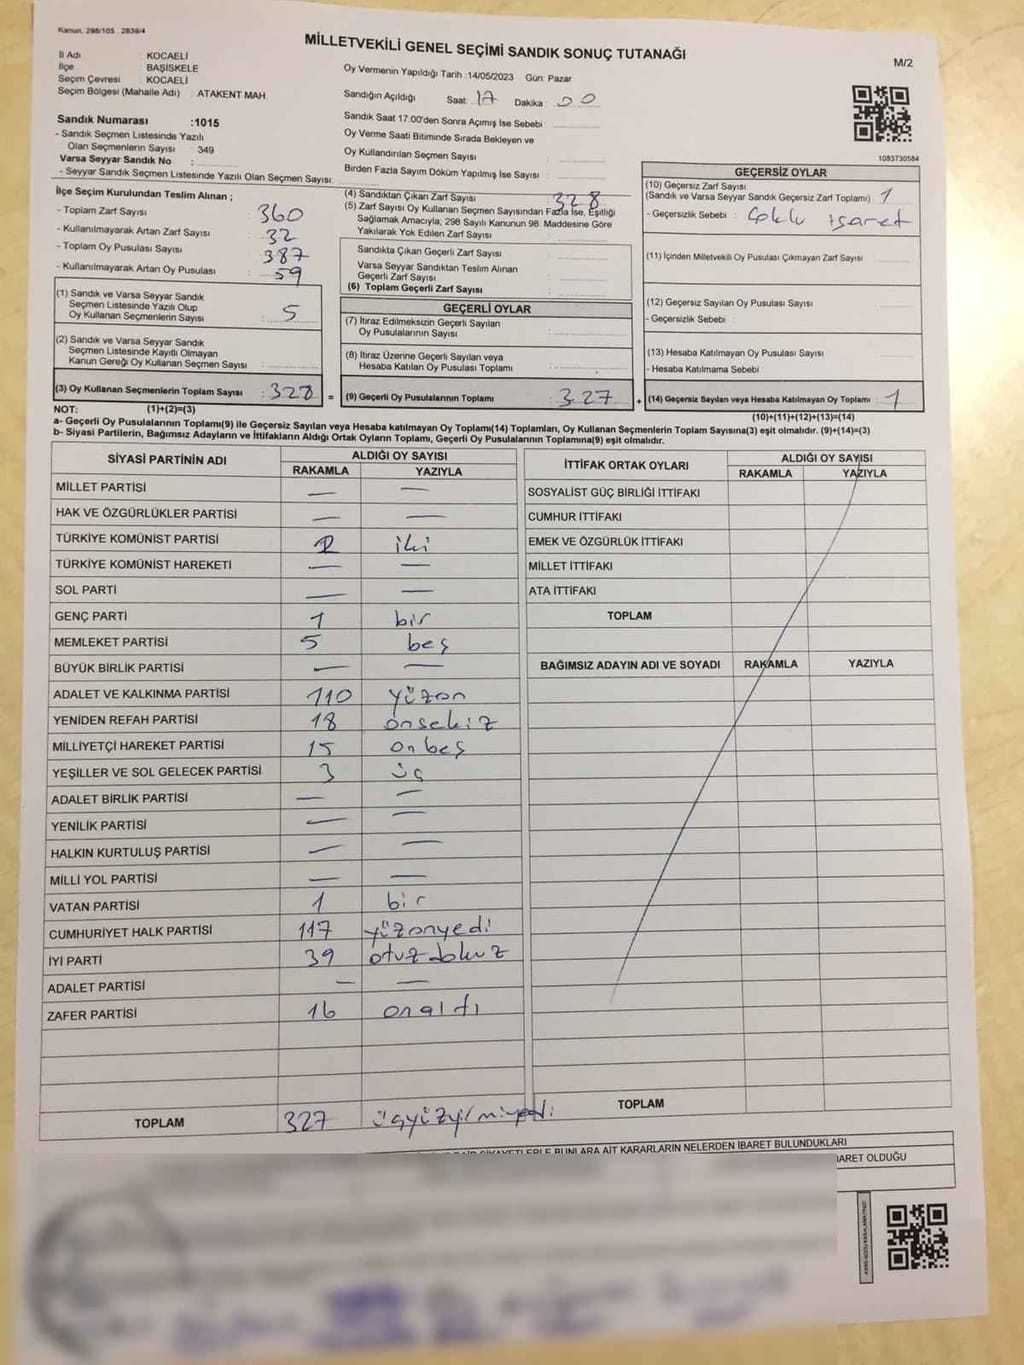 Kanun. 298/105 . 2839/4
MİLLETVEKİLİ GENEL SEÇİMİ SANDIK SONUÇ TUTANAĞI
M/2
İl Adı : KOCAELİ
İlçe : BAŞİSKELE
Seçim Çevresi : KOCAELİ
Seçim Bölgesi (Mahalle Adı) : ATAKENT MAH.
Sandık Numarası :1015
- Sandık Seçmen Listesinde Yazılı
Olan Seçmenlerin Sayısı : 349
Varsa Seyyar Sandık No :
- Seyyar Sandık Seçmen Listesinde Yazılı Olan Seçmen Sayısı:
Oy Vermenin Yapıldığı Tarih :14/05/2023 Gün: Pazar
Sandığın Açıldığı Saat: 17 Dakika : 00
Sandık Saat 17.00'den Sonra Açımış İse Sebebi :
Oy Verme Saati Bitiminde Sırada Bekleyen ve
Oy Kullandırılan Seçmen Sayısı
Birden Fazla Sayım Döküm Yapılmış İse Sayısı :
1083730584
İlçe Seçim Kurulundan Teslim Alınan ;
- Toplam Zarf Sayısı : 360
- Kullanılmayarak Artan Zarf Sayısı : 32
- Toplam Oy Pusulası Sayısı : 387
- Kullanılmayarak Artan Oy Pusulası : 59
(1) Sandık ve Varsa Seyyar Sandık
Seçmen Listesinde Yazılı Olup
Oy Kullanan Seçmenlerin Sayısı : 5
(2) Sandık ve Varsa Seyyar Sandık
Seçmen Listesinde Kayıtlı Olmayan
Kanun Gereği Oy Kullanan Seçmen Sayısı :
(3) Oy Kullanan Seçmenlerin Toplam Sayısı : 328 =
(4) Sandıktan Çıkan Zarf Sayısı : 328
(5) Zarf Sayısı Oy Kullanan Seçmen Sayısından Fazla İse, Eşitliği
Sağlamak Amacıyla; 298 Sayılı Kanunun 98. Maddesine Göre
Yakılarak Yok Edilen Zarf Sayısı :
Sandıkta Çıkan Geçerli Zarf Sayısı :
Varsa Seyyar Sandıktan Teslim Alınan
Geçerli Zarf Sayısı :
(6) Toplam Geçerli Zarf Sayısı :
GEÇERLİ OYLAR
(7) İtiraz Edilmeksizin Geçerli Sayılan
Oy Pusulalarının Sayısı :
(8) İtiraz Üzerine Geçerli Sayılan veya
Hesaba Katılan Oy Pusulası Toplamı :
(9) Geçerli Oy Pusulalarının Toplamı : 327 +
GEÇERSİZ OYLAR
(10) Geçersiz Zarf Sayısı
(Sandık ve Varsa Seyyar Sandık Geçersiz Zarf Toplamı) : 1
- Geçersizlik Sebebi : Çoklu işaret
(11) İçinden Milletvekili Oy Pusulası Çıkmayan Zarf Sayısı :
(12) Geçersiz Sayılan Oy Pusulası Sayısı :
- Geçersizlik Sebebi :
(13) Hesaba Katılmayan Oy Pusulası Sayısı :
- Hesaba Katılmama Sebebi
(14) Geçersiz Sayılan veya Hesaba Katılmayan Oy Toplamı : 1
NOT: (1)+(2)=(3)
(10)+(11)+(12)+(13)=(14)
a- Geçerli Oy Pusulalarının Toplamı(9) ile Geçersiz Sayılan veya Hesaba katılmayan Oy Toplamı(14) Toplamları, Oy Kullanan Seçmenlerin Toplam Sayısına(3) eşit olmalıdır. (9)+(14)=(3)
b- Siyasi Partilerin, Bağımsız Adayların ve İttifakların Aldığı Ortak Oyların Toplamı, Geçerli Oy Pusulalarının Toplamına(9) eşit olmalıdır.
SİYASİ PARTİNİN ADI ALDIĞI OY SAYISI
RAKAMLA YAZIYLA
MİLLET PARTİSİ — —
HAK VE ÖZGÜRLÜKLER PARTİSİ — —
TÜRKİYE KOMÜNİST PARTİSİ 2 iki
TÜRKİYE KOMÜNİST HAREKETİ — —
SOL PARTİ — —
GENÇ PARTİ 1 bir
MEMLEKET PARTİSİ 5 beş
BÜYÜK BİRLİK PARTİSİ — —
ADALET VE KALKINMA PARTİSİ 110 yüzon
YENİDEN REFAH PARTİSİ 18 onsekiz
MİLLİYETÇİ HAREKET PARTİSİ 15 onbeş
YEŞİLLER VE SOL GELECEK PARTİSİ 3 üç
ADALET BİRLİK PARTİSİ — —
YENİLİK PARTİSİ — —
HALKIN KURTULUŞ PARTİSİ — —
MİLLİ YOL PARTİSİ — —
VATAN PARTİSİ 1 bir
CUMHURİYET HALK PARTİSİ 117 yüzonyedi
İYİ PARTİ 39 otuzdokuz
ADALET PARTİSİ — —
ZAFER PARTİSİ 16 onaltı
TOPLAM 327 üçyüzyirmiyedi
İTTİFAK ORTAK OYLARI ALDIĞI OY SAYISI
RAKAMLA YAZIYLA
SOSYALİST GÜÇ BİRLİĞİ İTTİFAKI
CUMHUR İTTİFAKI
EMEK VE ÖZGÜRLÜK İTTİFAKI
MİLLET İTTİFAKI
ATA İTTİFAKI
TOPLAM
BAĞIMSIZ ADAYIN ADI VE SOYADI RAKAMLA YAZIYLA
TOPLAM
BUNLARA AİT KARARLARIN NELERDEN İBARET BULUNDUKLARI
İBARET OLDUĞU